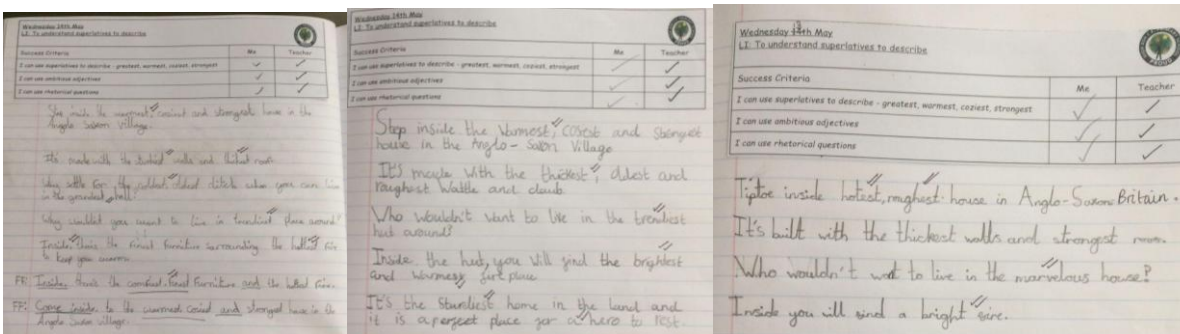 Wednesday 14th May
LI: To understand superlatives to describe
Success Criteria Me Teacher
I can use superlatives to describe - greatest, warmest, coziest, strongest
I can use ambitious adjectives
I can use rhetorical questions
Step inside the warmest, cosiest and strongest house in the
Anglo Saxon Village.
It's made with the walls and
Why settle for the coldest, oldest when you can live
in the grandest hall?
Why wouldn't you want to live in trendiest place around?
Inside, there's the finest furniture surrounding the hottest fire
to keep you warm.
FF: Inside, there's the furniture and the hottest fire.
FF: Come inside to the warmest and strongest house in the
Anglo Saxon village.
Wednesday 14th May
LI: To understand superlatives to describe
Success Criteria Me Teacher
I can use superlatives to describe - greatest, warmest, coziest, strongest
I can use ambitious adjectives
I can use rhetorical questions
Step inside the warmest, cosest and strongest
house in the Anglo-Saxon Village
It's made with the thickest, oldest and
roughest wattle and daub
Who wouldn't want to live in the trendiest
hut around?
Inside the hut, you will find the brightest
and warmest fire place
It's the in the land and
it is a perfect place for a hero to rest.
Wednesday 14th May
LI: To understand superlatives to describe
Success Criteria Me Teacher
I can use superlatives to describe - greatest, warmest, coziest, strongest
I can use ambitious adjectives
I can use rhetorical questions
Tiptoe inside hotest, roughest house in Anglo-Saxon Britain.
It's built with the thickest walls and strongest
Who wouldn't want to live in the marvelous house?
Inside you will find a bright fire.